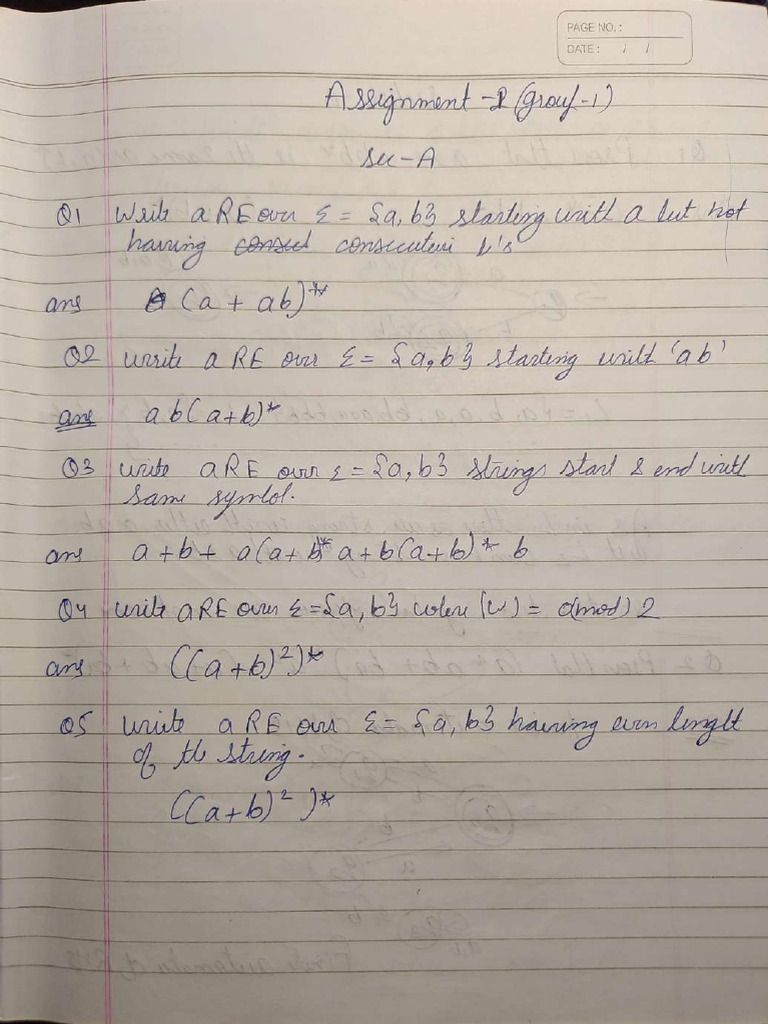 PAGE NO.:
DATE: / /
Assignment -1 (group-1)
sec-A
Q1 Write a RE over Σ = {a, b} starting with a but not
having consecutive b's
ans (a + ab)*
Q2 write a RE over Σ = {a, b} starting with 'ab'
ans ab(a+b)*
Q3 write a RE over Σ = {a, b} strings start & end with
same symbol.
ans a + b + a(a+b)* a + b(a+b)* b
Q4 write a RE over Σ = {a, b} where |w| = 0(mod) 2
ans ((a+b)²)*
Q5 write a RE over Σ = {a, b} having even length
of the string.
((a+b)²)*